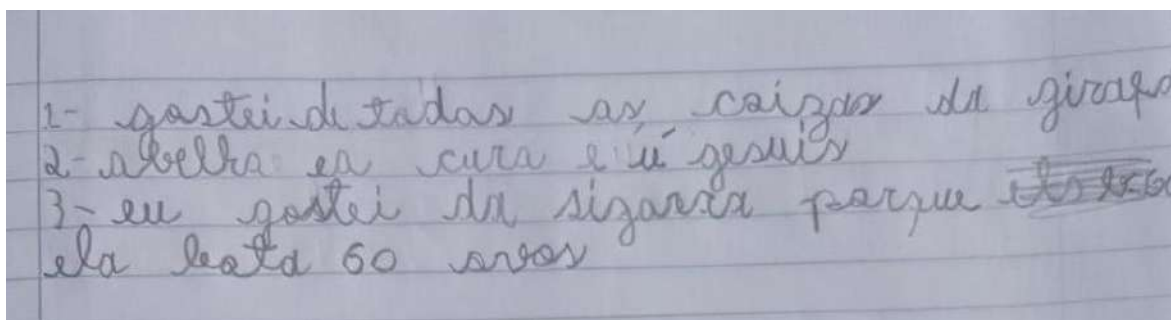 1- gostei de todas as coizas da girafa
2- abelha ea cura e ú gesuis
3- eu gostei da sigarra porque
ela bota 60 ovos